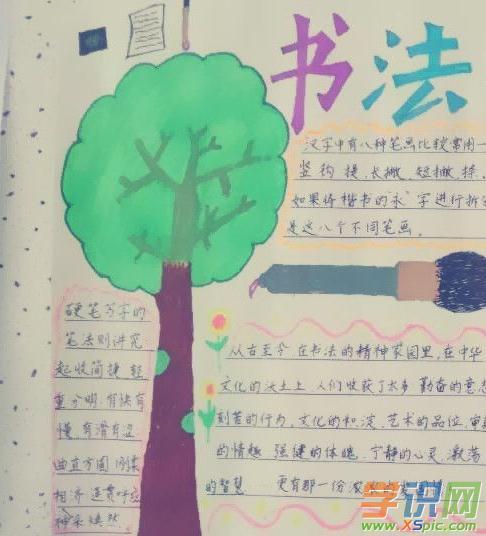 书法
汉字中有八种笔画比较常用一
竖 钩 提 长撇 短撇 捺
如果将楷书的"永"字进行拆
是这八个不同笔画。
硬笔写字的
笔法则讲究
起收简捷 轻
重分明 有快有
慢 有滑有涩
曲直方圆 刚柔
相济 连贯呼应
神采焕然
从古至今 在书法的精神家园里,在中华
文化的沃土上 人们收获了太多 勤奋的意志
刻苦的行为,文化的积淀,艺术的品位,审
的情趣 强健的体魄 宁静的心灵 激荡
的智慧 更有那一份
学识网
www.XSpic.com